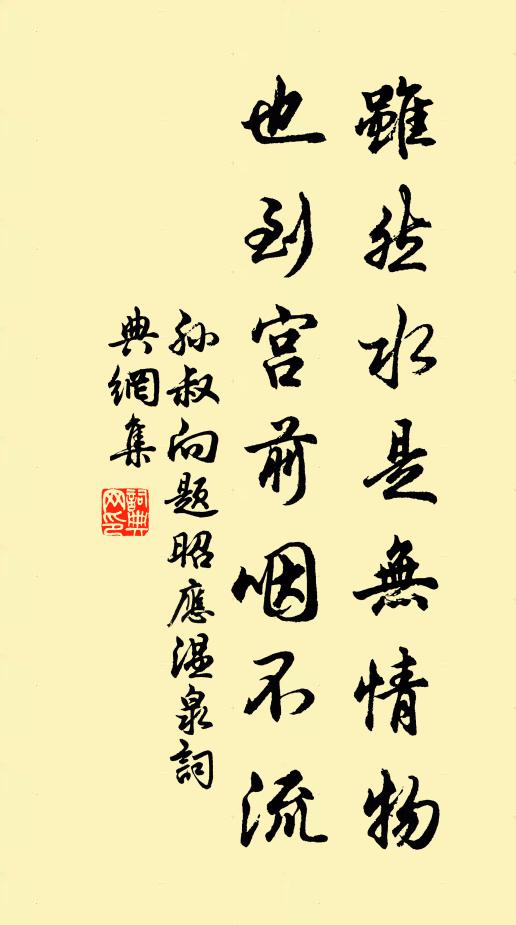 雖然水是無情物
也到宫前咽不流
孙叔向题昭應温泉詞
典網集
詞典网印